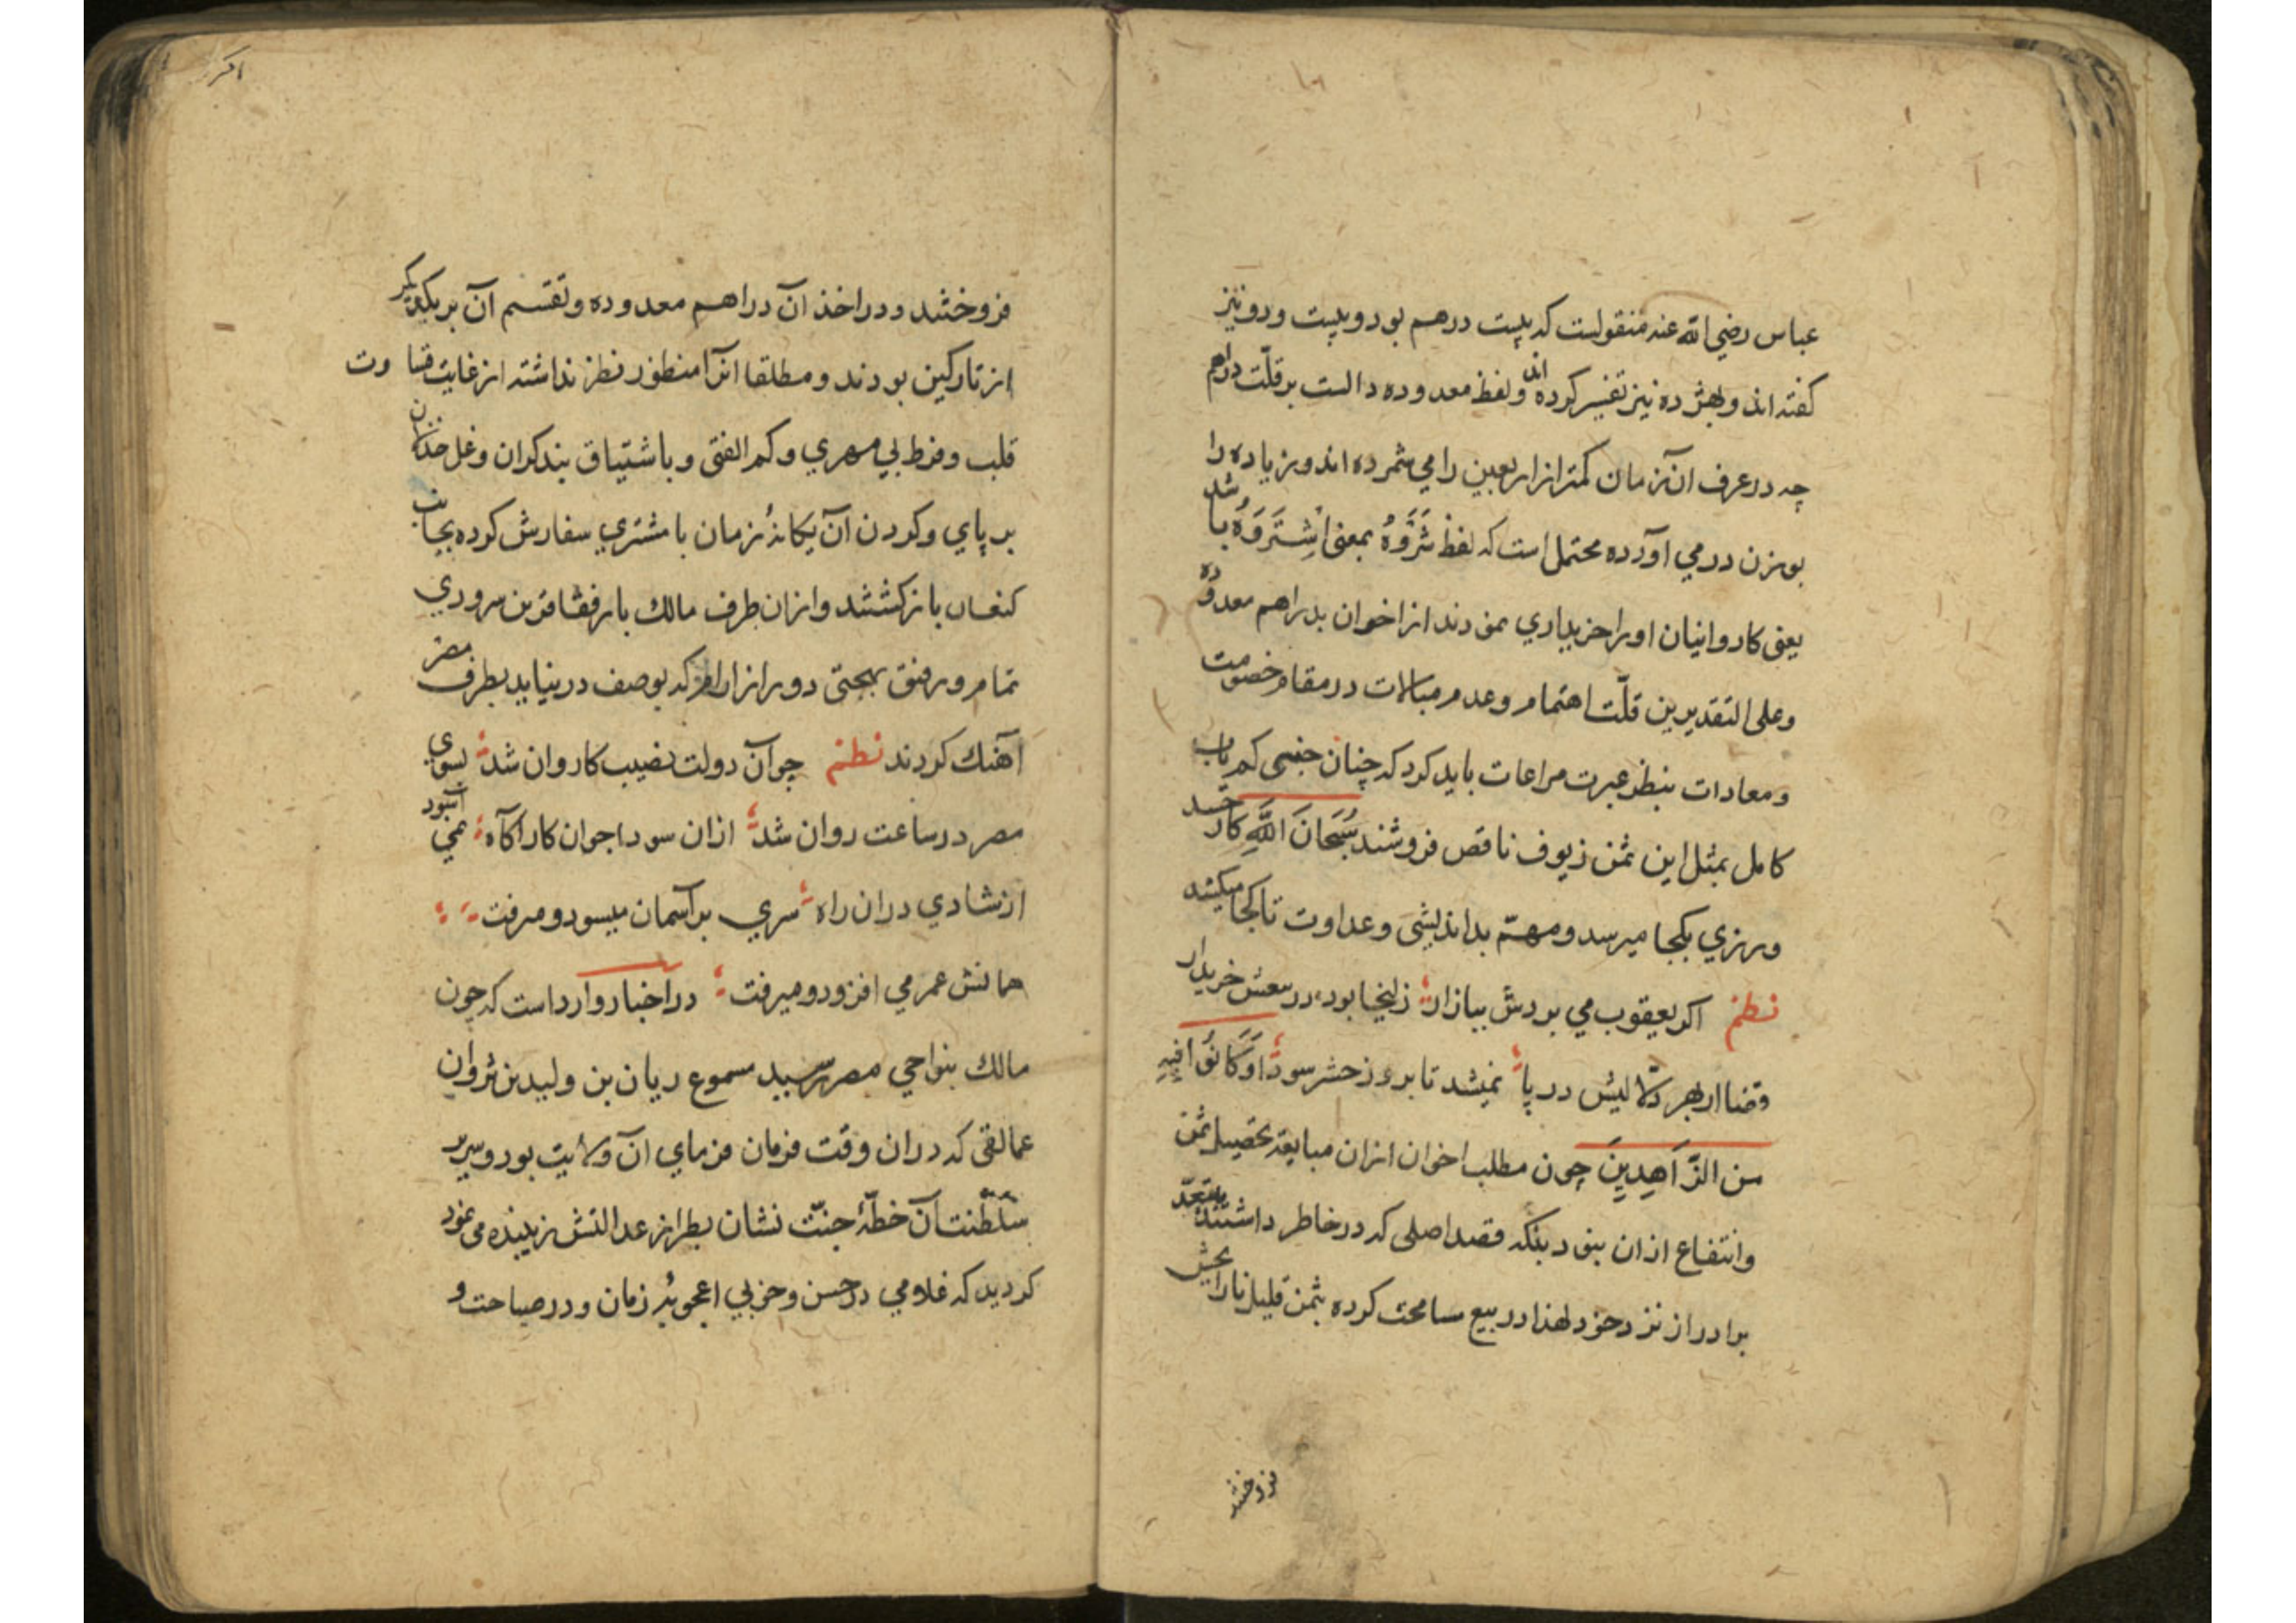 عباس رضي الله عنه منقولست كه بيست درهم بود و بيست و دو نيز
كفته اند و بهژده نيز تفسير كرده اند و لفظ معدوده دالست بر قلّت دراهم
چه در عرف آن زمان كمتر از اربعين را مي شمرده اند و زياده را
بوزن در مي آورده محتمل است كه لفظ شَرَوْهُ بمعنى اشْتَرَوَهُ باشد
يعنى كاروانيان او را خريداري نمودند از اخوان بدراهم معدوده
وعلى التقديرين قلّت اهتمام وعدم مبالات در مقام خصومت
ومعادات بنظر عبرت مراعات بايد كرد كه چنان جنسى كم ياب
كامل بمثل اين ثمن زيوف ناقص فروشند سُبْحَانَ اللَّهِ كار حسد
ورزي بكجا ميرسد ومهمّ بدانديشى وعداوت تا كجا ميكشد
نظم اكر يعقوب مي بردش ببازار زليخا بود در سعيش خريدار
قضا از بهر دلّاليش در پا نميشد تا بروز حشر سودا وَكَانُوا فِيهِ
مِنَ الزَّاهِدِينَ چون مطلب اخوان ازان مبايعه تحصيل ثمن
وانتفاع ازان بنود بلكه قصد اصلى كه در خاطر داشتند تبعيد
برادر از نزد خود لهذا در بيع مسامحت كرده بثمن قليل نارايجش
فروختند
اكر
فروختند ودر اخذ آن دراهم معدوده وتقسيم آن بر يكديكر
از تاركين بودند ومطلقا آنرا منظور نظر نداشته از غايت قساوت
قلب وفرط بي مهري وكم الفتى وباشتياق بند كران وغل خذلان
بر پاي وكردن آن يكانۀ زمان با مشتري سفارش كرده بجانب
كنعان باز كشتند وازان طرف مالك با رفقا قرين سروري
تمام ورفيق بهجتى دور از اندازه كه بوصف در نيايد بطرف مصر
آهنك كردند نظم چو آن دولت نصيب كاروان شد بسوي
مصر در ساعت روان شد ازان سودا جوان كار آكاه نمي آسود
از شادي دران راه سري بر آسمان ميسود و ميرفت
همانش عمر مي افزود و ميرفت در اخبار وارد است كه چون
مالك بنواحي مصر رسيد مسموع ريان بن وليد بن ثروان
عمالقى كه دران وقت فرمان فرماي آن ولايت بود وسرير
سلطنت آن خطّۀ جنّت نشان بطراز عدالتش زيبنده مى نمود
كرديد كه غلامي در حسن وخوبي اعجوبۀ زمان ودر صباحت و